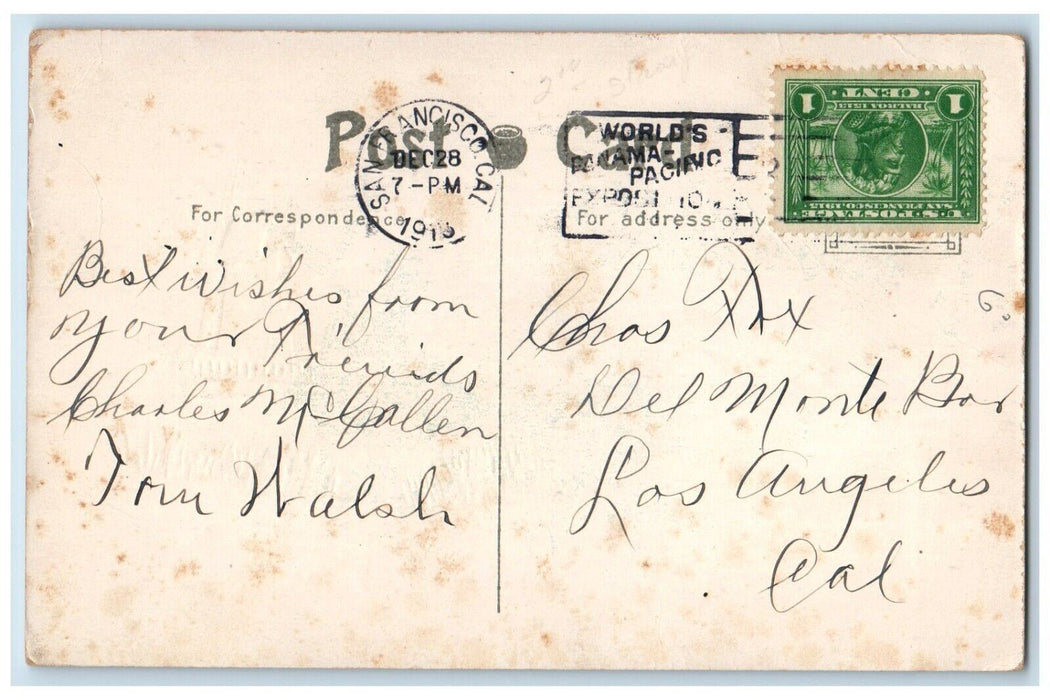 Post Card
SAN FRANCISCO, CAL
DEC 28
7-PM
WORLD'S
PANAMA-
PACIFIC
EXPOSITION
1 CENT 1
BALBOA 1513
SAN FRANCISCO 1915
U.S. POSTAGE
For Correspondence
For address only
Best wishes from
your Freinds
Charles McCallen
Tom Walsh
Chas
Del Monte Bar
Los Angeles
Cal